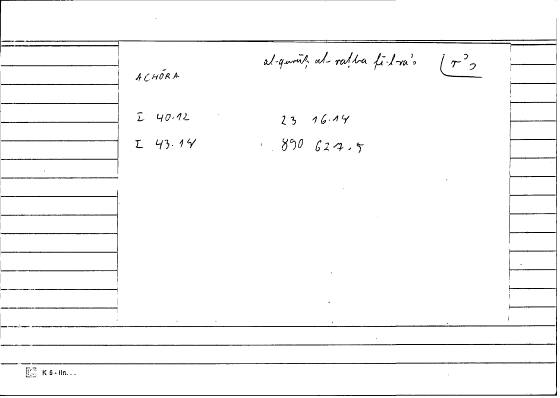 al-qurūḥ al-raṭba fī l-raʾs
ACHÓRA
I 40.12 23 16.14
I 43.14 890 627.5
K 5 - lin...